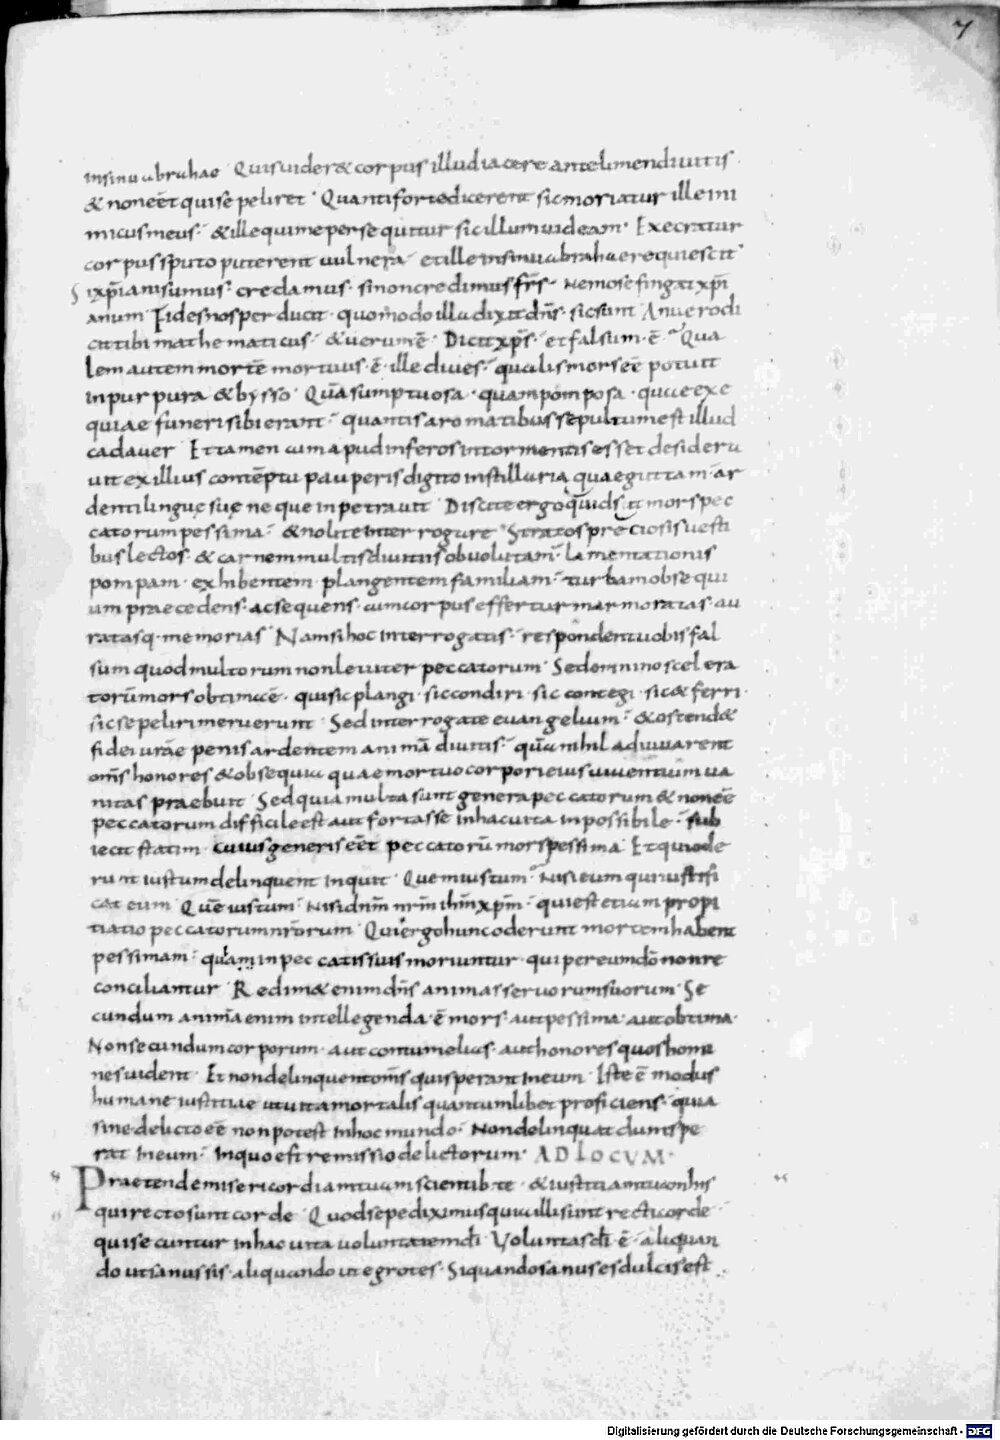 7
insinu abrahae Quisuider&corpus illud iacere ante limen diuitis
& non eēt qui sepeliret · Quanti forte dicerent sic moriatur ille ini
micus meus · & ille qui me persequitur sic illum uideam · Execratur
corpus sputo puterent uulnera et ille insinu abrahae requiescit
Si xp̄iani sumus · credamus · si non credimus frs̄ · Nemo se fingat xp̄i
anum Fides nos perducit · quomodo illud dixit dn̄s · sic sunt An uero di
cit tibi mathematicus · & uerum ē Dicit xp̄s · et falsum ē Qua
lem autem mortē mortuus · ē · ille diues · qualis mors eē potuit
in purpura & bysso Quā sumptuosa · quam pomposa · quae exe
quiae funeri sibi erant · quantis aromatibus sepultum est illud
cadauer Et tamen cum apud inferos in tormentis esset desidera
uit ex illius contēptu pauperis digito instillari aquae guttam · ar
denti linguę suę neque inpetrauit Discite ergo quid sit mors pec
catorum pessima · & nolite interrogare Stratos preciosis uesti
bus lectos · & carnem multis diuitiis obuolutam · lamentationis
pompam · exhibentem plangentem familiam · turbam obsequi
um praecedens · ac sequens · cum corpus effertur marmoratas · au
ratasq · memorias Nam si hoc interrogatis · respondent uobis fal
sum quod multorum non leuiter peccatorum Sed omnino scelera
torū mors obtima eē · qui sic plangi · sic condiri · sic contegi · sic efferri ·
sic sepeliri meruerunt Sed interrogate euangelium · & ostend&
fidei ur̄ae penis ardentem animā diuitis · quā nihil adiuuarent
om̄s honores & obsequia quae mortuo corpori eius uiuentium ua
nitas praebuit Sed quia multa sunt genera peccatorum & non eē
peccatorum difficile est aut fortasse in hac uita inpossibile · sub
iecit statim cuius generis eēt peccatorū mors pessima Et qui ode
runt iustum delinquent inquit Quem iustum · Nisi eum qui iustifi
cat eum Quē iustum · Nisi dnm̄ nrm̄ ihm̄ xpm̄ · qui est etiam propi
tiatio peccatorum nr̄orum Qui ergo hunc oderunt mortem habent
pessimam · quam in peccatis suis moriuntur · qui per eum dō non re
conciliantur Redim& enim dn̄s animas seruorum suorum Se
cundum animā enim intellegenda · ē mors · aut pessima · aut obtima ·
Non secundum corporum · aut contumelias · aut honores quos homi
nes uident Et non delinquent om̄s qui sperant in eum Iste ē modus
humane iustitiae ut uita mortalis quantumlibet proficiens · quia
sine delicto eē non potest in hoc mundo · Non delinquat dum spe
rat in eum · In quo est remissio delictorum · AD LOCUM ·
Praetende misericordiam tuam scientib · te · & iustitiam tuam his
qui recto sunt corde Quod sepe diximus quia illi sunt recti corde
qui secuntur in hac uita uoluntatem dī Uoluntas dī ē · aliquan
do ut sanus sis · aliquando ut egrotes · Si quando sanus es dulcis est
Digitalisierung gefördert durch die Deutsche Forschungsgemeinschaft - DFG